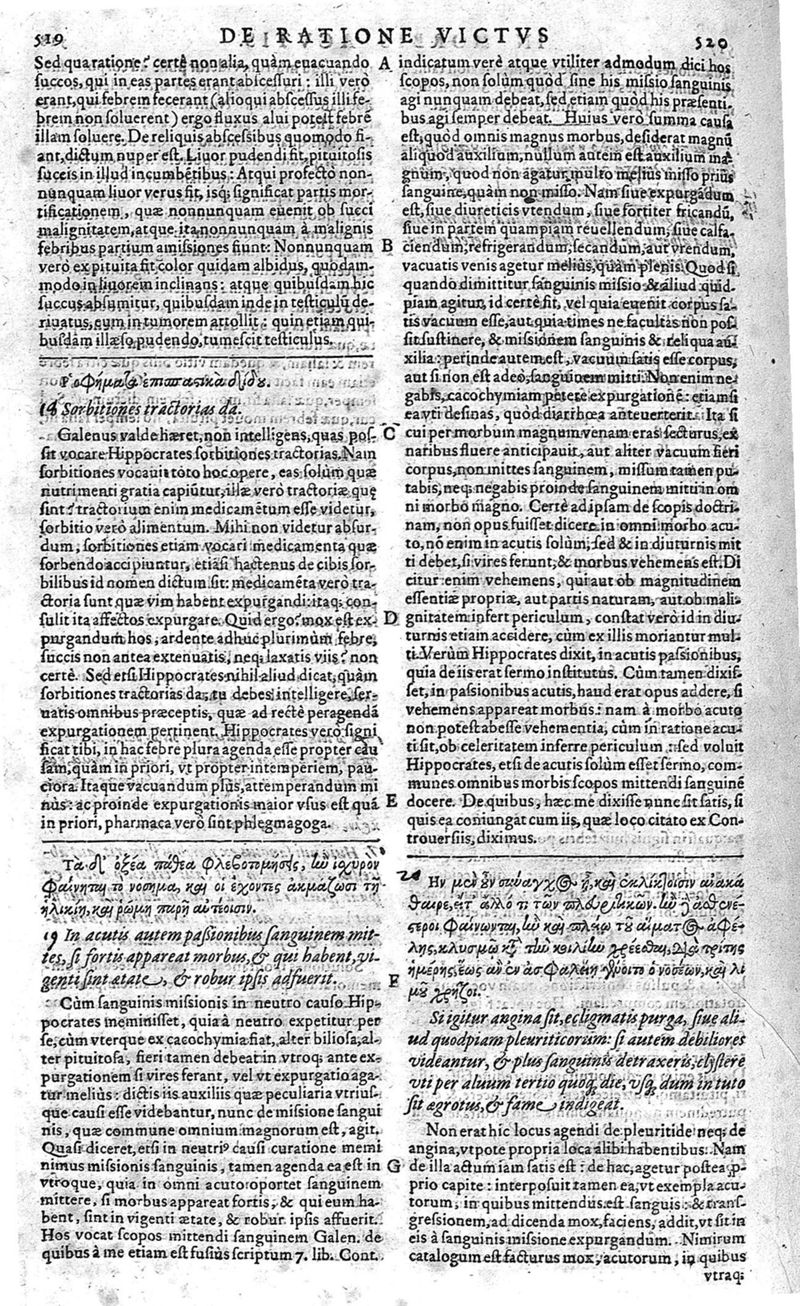 519
DE RATIONE VICTVS
520
Sed qua ratione? certè non alia, quàm euacuando
succos, qui in eas partes erant abscessuri: illi verò
erant, qui febrem fecerant (alioqui abscessus illi fe-
brem non soluerent) ergo fluxus alui potest febrẽ
illam soluere. De reliquis abscessibus quomodo fi-
ant, dictum nuper est. Liuor pudendi fit, pituitosis
succis in illud incumbẽtibus: Atqui profectò non-
nunquam liuor verus fit, isq; significat partis mor-
tificationem, quæ nonnunquam euenit ob succi
malignitatem, atque ita nonnunquam à malignis
febribus partium amissiones fiunt: Nonnunquam
verò ex pituita fit color quidam albidus, quodam-
modo in liuorem inclinans: atque quibusdam hic
succus absumitur, quibusdam inde in testiculũ de-
riuatus, eum in tumorem attollit: quin etiam qui-
busdam illæso pudendo, tumescit testiculus.
Ροφήματα ἐπισπαστικὰ δίδου.
18 Sorbitiones tractorias da.
Galenus valde hæret, non intelligens, quas pos-
sit vocare Hippocrates sorbitiones tractorias. Nam
sorbitiones vocauit toto hoc opere, eas solùm quæ
nutrimenti gratia capiũtur, illæ verò tractoriæ quę
sint? tractorium enim medicamẽtum esse videtur,
sorbitio verò alimentum. Mihi non videtur absur-
dum, sorbitiones etiam vocari medicamenta quæ
sorbendo accipiuntur, etiãsi hactenus de cibis sor-
bilibus id nomen dictum sit: medicamẽta verò tra-
ctoria sunt quæ vim habent expurgandi: itaq; con-
sulit ita affectos expurgare. Quid ergo? mox est ex-
purgandum hos, ardente adhuc plurimùm febre,
succis non antea extenuatis, neq; laxatis viis? non
certè. Sed etsi Hippocrates nihil aliud dicat, quàm
sorbitiones tractorias da, tu debes intelligere, ser-
uatis omnibus præceptis, quæ ad rectè peragendã
expurgationem pertinent. Hippocrates verò signi
ficat tibi, in hac febre plura agenda esse propter cau
sam, quàm in priori, vt propter intemperiem, pau-
ciora. Itaque vacuandum plus, attemperandum mi
nùs: ac proinde expurgationis maior vsus est quã
in priori, pharmaca verò sint phlegmagoga.
Τὰ δ' ὀξέα πάθεα φλεβοτομήσεις, ἢν ἰσχυρὸν
φαίνηται τὸ νόσημα, καὶ οἱ ἔχοντες ἀκμάζωσι τῇ
ἡλικίῃ, καὶ ῥώμη παρῇ αὐτέοισιν.
19 In acutis autem passionibus sanguinem mit-
tes, si fortis appareat morbus, & qui habent, vi-
genti sint ætate, & robur ipsis adfuerit.
Cùm sanguinis missionis in neutro causo Hip-
pocrates meminisset, quia à neutro expetitur per
se, cùm vterque ex cacochymia fiat, alter biliosa, al-
ter pituitosa, fieri tamen debeat in vtroq; ante ex-
purgationem si vires ferant, vel vt expurgatio aga-
tur meliùs: dictis iis auxiliis quæ peculiaria vtrius-
que causi esse videbantur, nunc de missione sangui
nis, quæ commune omnium magnorum est, agit.
Quasi diceret, etsi in neutri⁹ causi curatione memi
nimus missionis sanguinis, tamen agenda ea est in
vtroque, quia in omni acuto oportet sanguinem
mittere, si morbus appareat fortis, & qui eum ha-
bent, sint in vigenti ætate, & robur ipsis affuerit.
Hos vocat scopos mittendi sanguinem Galen. de
quibus à me etiam est fusiùs scriptum 7. lib. Cont.
A
B
C
D
E
F
G
indicatum verè atque vtiliter admodum dici hos
scopos, non solùm quòd sine his missio sanguinis
agi nunquam debeat, sed etiam quòd his præsenti-
bus agi semper debeat. Huius verò summa causa
est, quòd omnis magnus morbus, desiderat magnũ
aliquod auxilium, nullum autem est auxilium ma-
gnum, quod non agatur multo meliùs misso priùs
sanguine, quàm non misso. Nam siue expurgãdum
est, siue diureticis vtendum, siue fortiter fricandũ,
siue in partem quampiam reuellendum, siue calfa-
ciendum, refrigerandum, secandum, aut vrendum,
vacuatis venis agetur meliùs, quàm plenis. Quòd si
quando dimittitur sanguinis missio & aliud quid-
piam agitur, id certè fit, vel quia euenit corpus sa-
tis vacuum esse, aut quia times ne facultas non pos
sit sustinere, & missionem sanguinis & reliqua au-
xilia: perinde autem est, vacuum satis esse corpus,
aut si non est adeò, sanguinem mitti. Non enim ne-
gabis, cacochymiam petere expurgationẽ: etiamsi
ea vti desinas, quòd diarrhœa anteuerterit. Ita si
cui per morbum magnum venam eras secturus, ex
naribus fluere anticipauit, aut aliter vacuum fieri
corpus, non mittes sanguinem, missum tamen pu-
tabis, neq; negabis proinde sanguinem mitti in om
ni morbo magno. Certè ad ipsam de scopis doctri-
nam, non opus fuisset dicere in omni morbo acu-
to, nõ enim in acutis solùm, sed & in diuturnis mit
ti debet, si vires ferunt, & morbus vehemens est. Di
citur enim vehemens, qui aut ob magnitudinem
essentiæ propriæ, aut partis naturam, aut ob mali-
gnitatem infert periculum, constat verò id in diu-
turnis etiam accidere, cùm ex illis moriantur mul-
ti. Verùm Hippocrates dixit, in acutis passionibus,
quia de iis erat sermo institutus. Cùm tamen dixis-
set, in passionibus acutis, haud erat opus addere, si
vehemens appareat morbus: nam à morbo acuto
non potest abesse vehementia, cùm in ratione acu-
ti sit, ob celeritatem inferre periculum: sed voluit
Hippocrates, etsi de acutis solùm esset sermo, com-
munes omnibus morbis scopos mittendi sanguinẽ
docere. De quibus, hæc me dixisse nunc sit satis, si
quis ea coniungat cum iis, quæ loco citato ex Con-
trouersiis, diximus.
20 Ἢν μὲν οὖν συνάγχη ᾖ, καὶ ἐκλεικτοῖσιν ἀνακά
θαιρε, εἴτ' ἄλλο τι τῶν πλευριτικῶν. ἢν δ' ἀσθενέ-
στεροι φαίνωνται, ἢν καὶ πλείω τοῦ αἵματος ἀφέ-
λῃς, κλυσμῷ κατὰ τὴν κοιλίην χρέεσθαι, διὰ τρίτης
ἡμέρης, ἕως ἂν ἐν ἀσφαλείῃ γένοιτο ὁ νοσέων, καὶ λι
μοῦ χρῄζοι.
Si igitur angina sit, ecligmatis purga, siue ali-
ud quodpiam pleuriticorum: si autem debiliores
videantur, & plus sanguinis detraxeris, clystere
vti per aluum tertio quoq; die, vsq; dum in tuto
sit ægrotus, & fame indigeat.
Non erat hic locus agendi de pleuritide neq; de
angina, vtpote propria loca alibi habentibus: Nam
de illa actum iam satis est: de hac, agetur postea p-
prio capite: interposuit tamen ea, vt exempla acu-
torum, in quibus mittendus est sanguis: & trans-
gressionem, ad dicenda mox, faciens, addit, vt sit in
eis à sanguinis missione expurgandum. Nimirum
catalogum est facturus mox, acutorum, in quibus
vtraq;